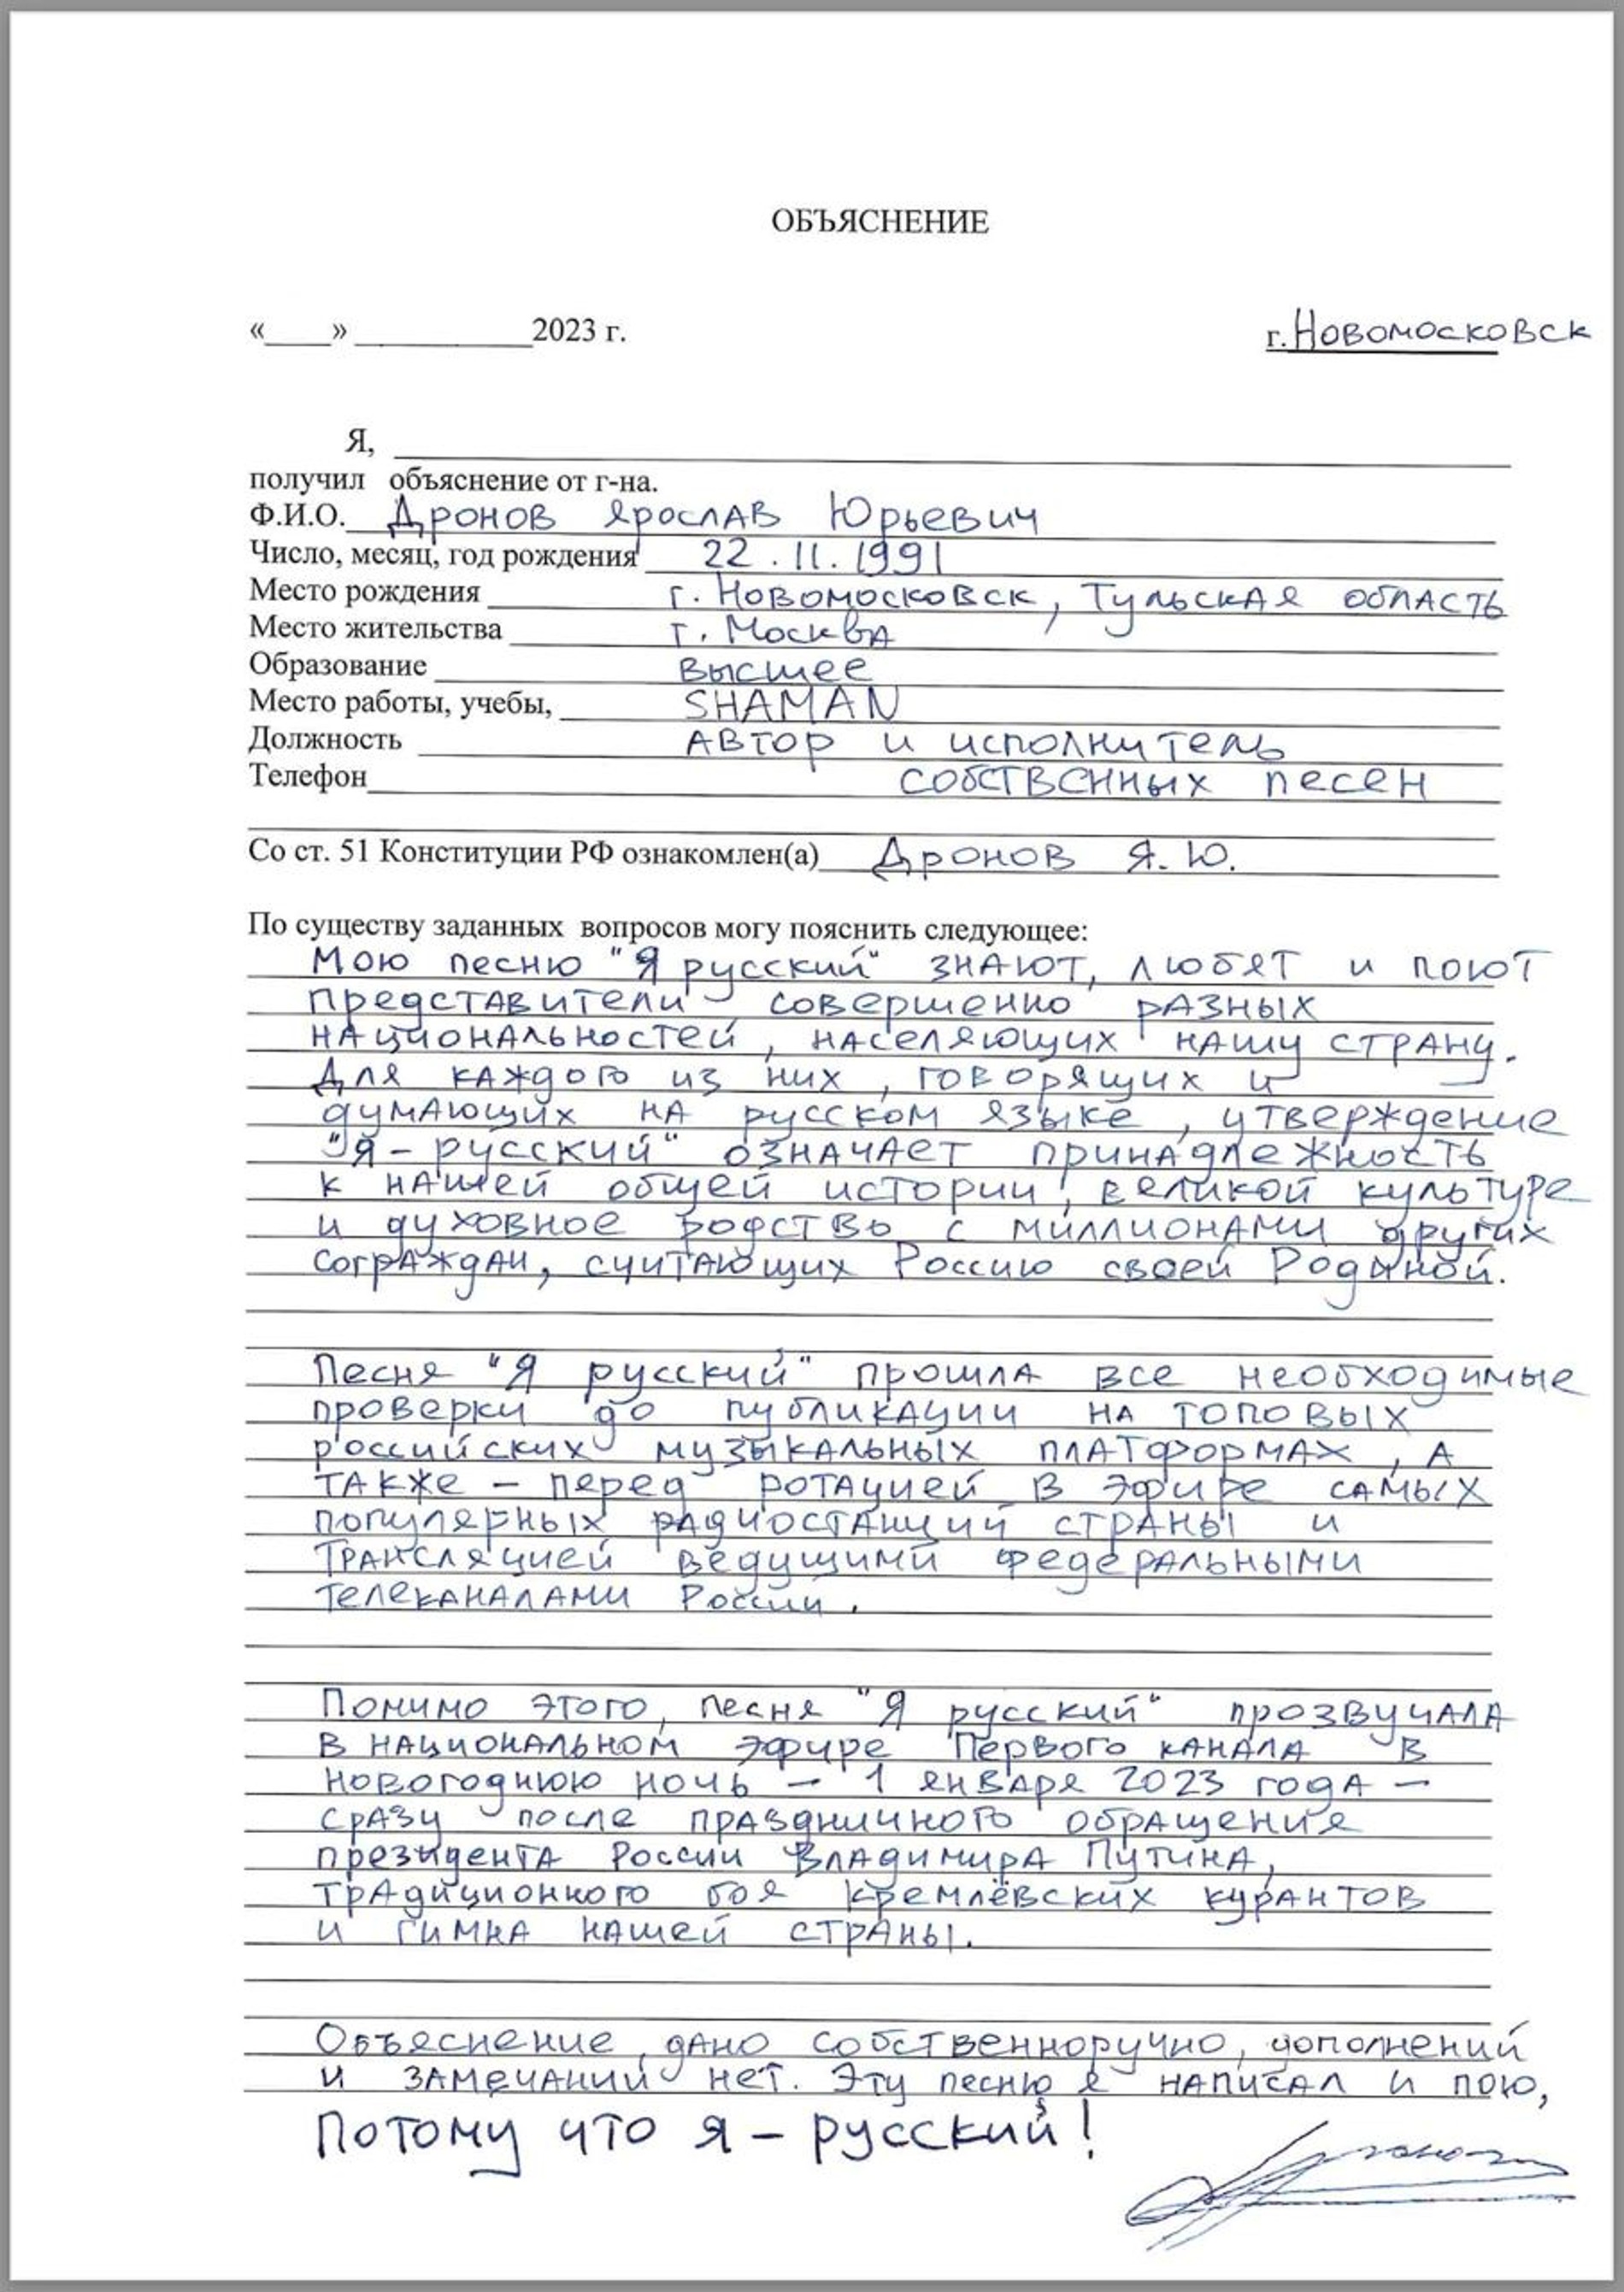 ОБЪЯСНЕНИЕ
«____» ___________2023 г. г. Новомосковск
Я, ____________
получил объяснение от г-на.
Ф.И.О. Дронов Ярослав Юрьевич
Число, месяц, год рождения 22.11.1991
Место рождения г. Новомосковск, Тульская область
Место жительства г. Москва
Образование высшее
Место работы, учебы, SHAMAN
Должность автор и исполнитель
Телефон собственных песен
Со ст. 51 Конституции РФ ознакомлен(а) Дронов Я.Ю.
По существу заданных вопросов могу пояснить следующее:
Мою песню "Я русский" знают, любят и поют
представители совершенно разных
национальностей, населяющих нашу страну.
Для каждого из них, говорящих и
думающих на русском языке, утверждение
"Я - русский" означает принадлежность
к нашей общей истории, великой культуре
и духовное родство с миллионами других
сограждан, считающих Россию своей Родиной.
Песня "Я русский" прошла все необходимые
проверки до публикации на топовых
российских музыкальных платформах, а
также - перед ротацией в эфире самых
популярных радиостанций страны и
трансляцией ведущими федеральными
телеканалами России.
Помимо этого, песня "Я русский" прозвучала
в национальном эфире Первого канала в
новогоднюю ночь - 1 января 2023 года -
сразу после праздничного обращения
президента России Владимира Путина,
традиционного боя кремлёвских курантов
и гимна нашей страны.
Объяснение дано собственноручно, дополнений
и замечаний нет. Эту песню я написал и пою,
Потому что я - русский!